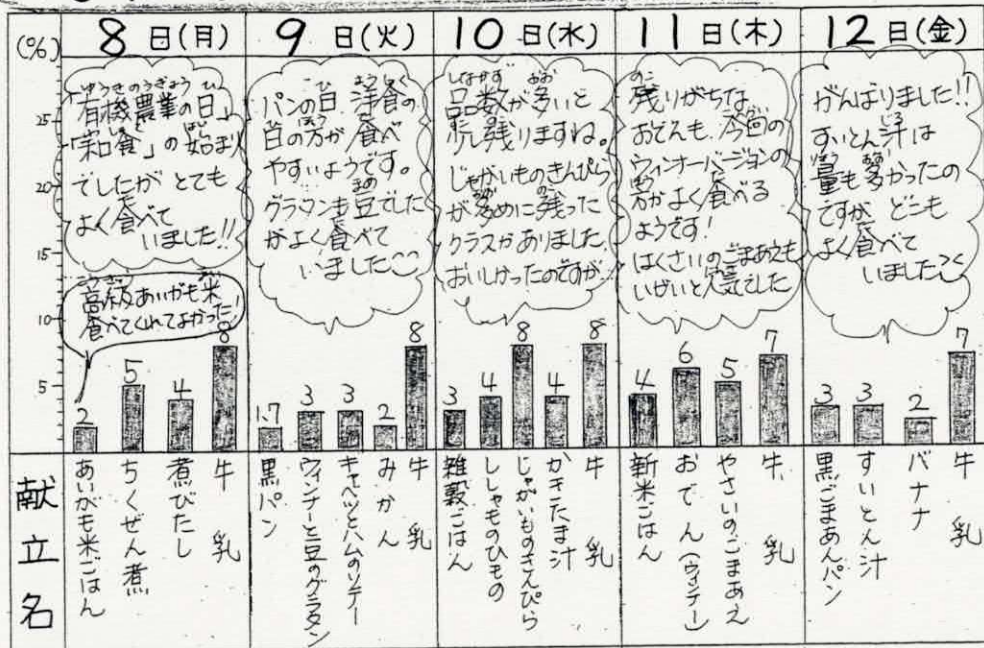 (%)
8日(月)
9日(火)
10日(水)
11日(木)
12日(金)
25
20
15
10
5
ゆうきのうぎょう ひ
「有機農業の日」
「和食」の始まり
でしたが とても
よく食べて
いました!!
高級あいがも米
食べてくれてよかった!
2
5
4
8
パンの日 洋食の
日の方が 食べ
やすいようです。
グラタンも豆でした
がよく食べて
いました
1.7
3
3
2
8
しなかず おお
品数が多いと
少し残りますね。
じゃがいものきんぴら
が多めに残った
クラスがありました。
おいしかったのですが…
3
4
8
4
8
残りがちな
おでんも、今回の
ウィンナーバージョンの
方がよく食べる
ようです!
はくさいのごまあえも
いがいと人気でした
4
6
5
7
がんばりました!!
すいとん汁は
量も多かったの
ですが どこも
よく食べて
いました
3
3
2
7
献立名
あいがも米ごはん
ちくぜん煮
煮びたし
牛乳
黒パン
ウィンナーと豆のグラタン
キャベツとハムのソテー
みかん
牛乳
雑穀ごはん
ししゃものひもの
じゃがいものきんぴら
かきたま汁
牛乳
新米ごはん
おでん(ウィンナー)
やさいのごまあえ
牛乳
黒ごまあんパン
すいとん汁
バナナ
牛乳